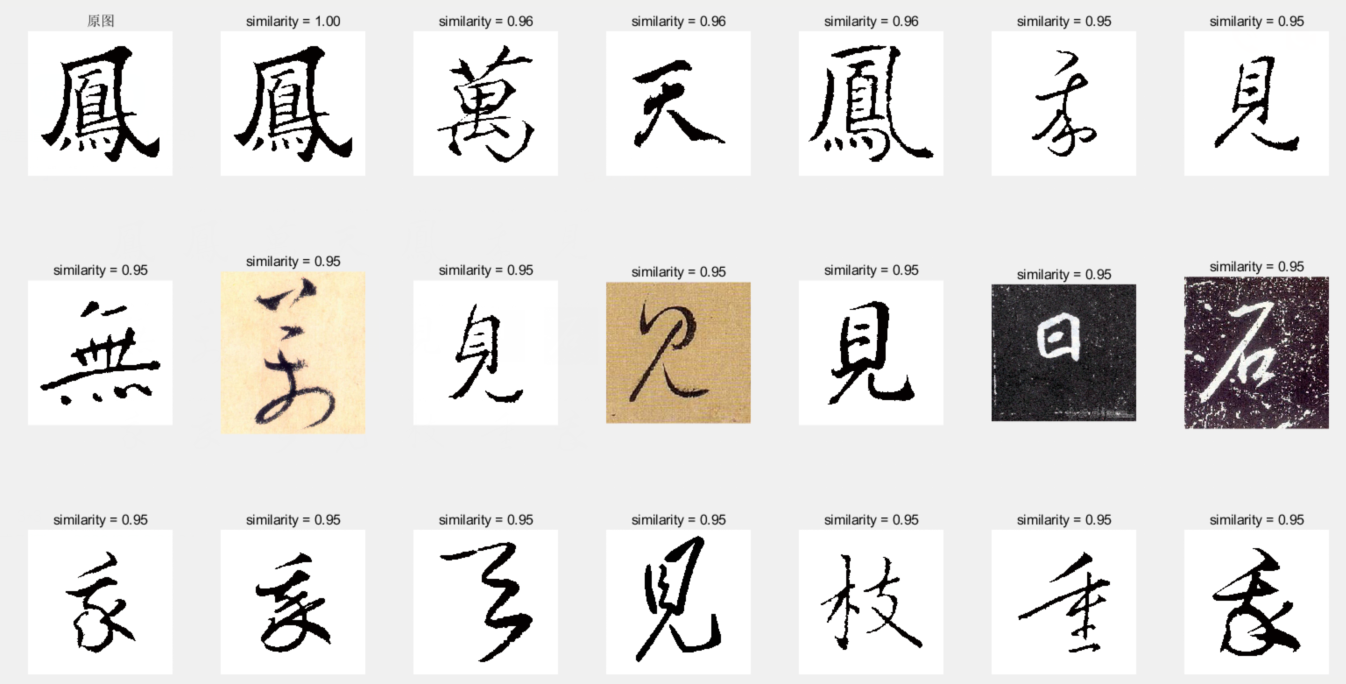 原图 similarity = 1.00 similarity = 0.96 similarity = 0.96 similarity = 0.96 similarity = 0.95 similarity = 0.95
鳳 鳳 萬 天 鳳 見
similarity = 0.95 similarity = 0.95 similarity = 0.95 similarity = 0.95 similarity = 0.95 similarity = 0.95 similarity = 0.95
無 萬 見 見 見 日 石
similarity = 0.95 similarity = 0.95 similarity = 0.95 similarity = 0.95 similarity = 0.95 similarity = 0.95 similarity = 0.95
天 見 枝 重